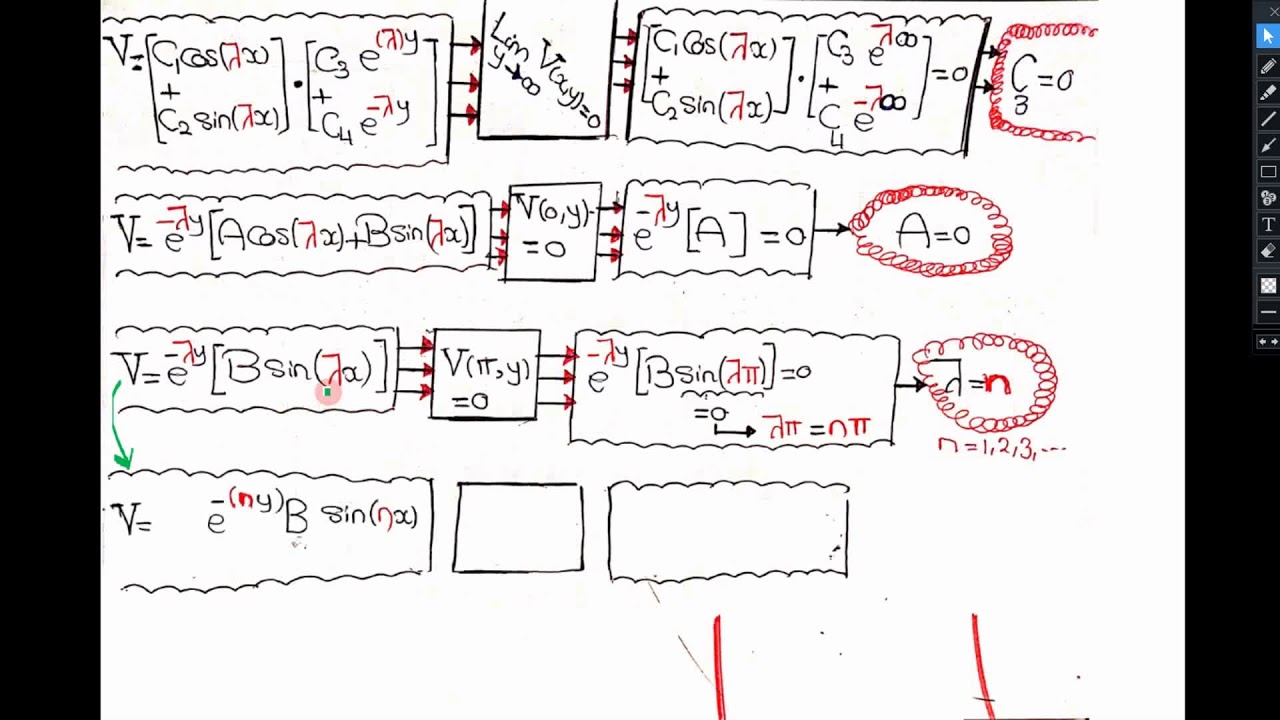 V= [C₁cos(λx) + C₂sin(λx)] · [C₃e^(λ)y + C₄e^-λy]
Lim y→∞ V(x,y)=0
[C₁cos(λx) + C₂sin(λx)] · [C₃e^λ∞ + C₄e^-λ∞] =0
C₃=0
V= e^-λy [Acos(λx)+Bsin(λx)]
V(0,y) =0
e^-λy [A] =0
A=0
V= e^-λy [Bsin(λx)]
V(π,y) =0
e^-λy [Bsin(λπ)]=0
=0
λπ = nπ
λ=n
n=1,2,3,...
V= e^-(ny) B sin(nx)
T